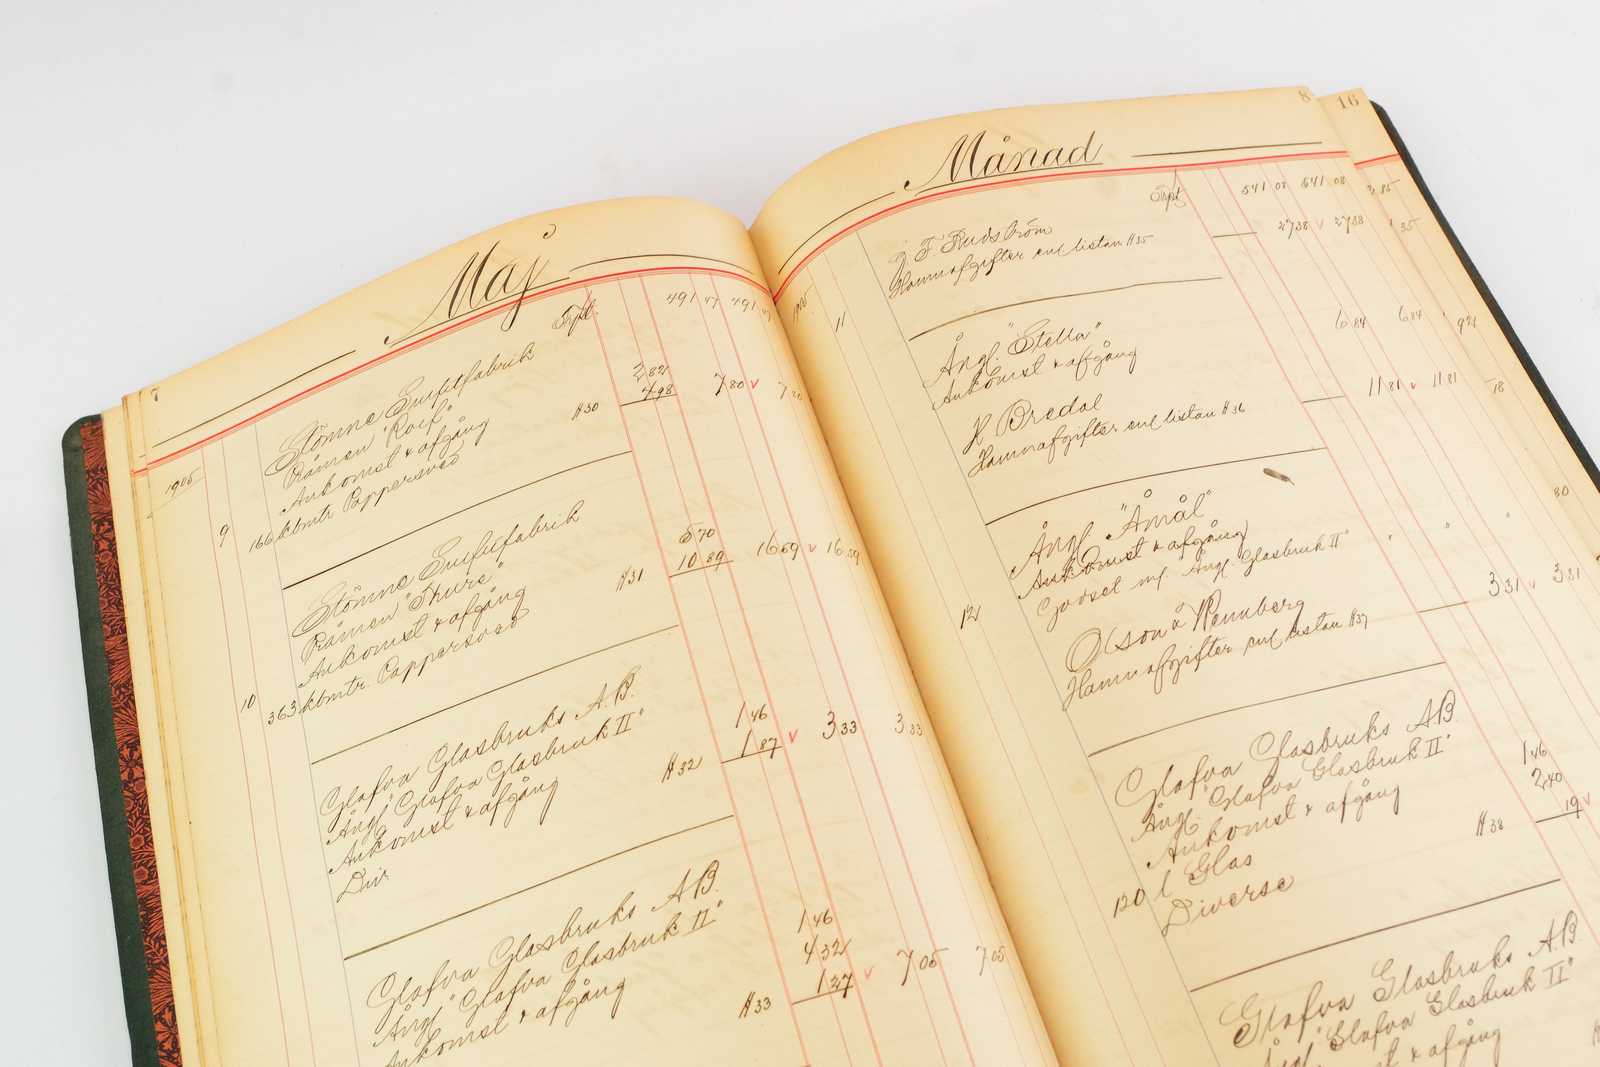 7
Maj
Trpt. 491 47 491 47
1905
Stömne Sulfitfabrik
Pråmen "Rolf"
Ankomst & afgång 2 82
9 166 kbmtr Pappersved #30 4 98 7 80 v 7 80
Stömne Sulfitfabrik
Pråmen "Thure"
Ankomst & afgång 5 70
10 363 kbmtr. Pappersved #31 10 89 16 59 v 16 59
Glafva Glasbruks A.B.
Ångf. "Glafva Glasbruk II"
Ankomst & afgång 1 46
Div #32 1 87 v 3 33 3 33
Glafva Glasbruks A.B.
Ångf. "Glafva Glasbruk II"
Ankomst & afgång 1 46
4 32
#33 1 27 v 7 05 7 05
8 16
Månad
Trpt 541 08 541 08 2 85
1905
11 J F Rudström
Hamnafgifter enl listan #35 27 38 v 27 38 1 35
Ångf. "Stella"
Ankomst & afgång 6 84 6 84 " 92
H Bredal
Hamnafgifter enl listan #36 11 81 v 11 81 18
Ångf "Åmål"
Ankomst & afgång 80
12 Godset inf. Ångf. Glasbruk II" " " "
Olson & Wennberg
Hamnafgifter enl listan #37 3 31 v 3 31
Glafva Glasbruks AB.
Ångf. "Glafva Glasbruk II"
Ankomst & afgång 1 46
120 l Glas 2 40
Diverse #38 19 v
Glafva Glasbruks A.B.
Ångf. "Glafva Glasbruk II"
& afgång